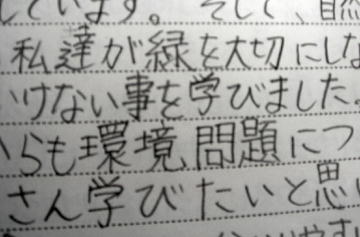 しています。そして、自然
私達が緑を大切にしな
けない事を学びました
らも環境問題につ
さん学びたいと思い